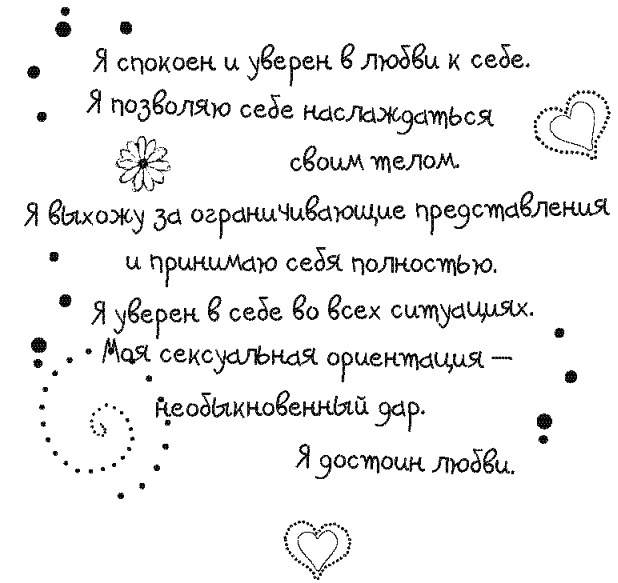 Я спокоен и уверен в любви к себе.
Я позволяю себе наслаждаться
своим телом.
Я выхожу за ограничивающие представления
и принимаю себя полностью.
Я уверен в себе во всех ситуациях.
Моя сексуальная ориентация –
необыкновенный дар.
Я достоин любви.